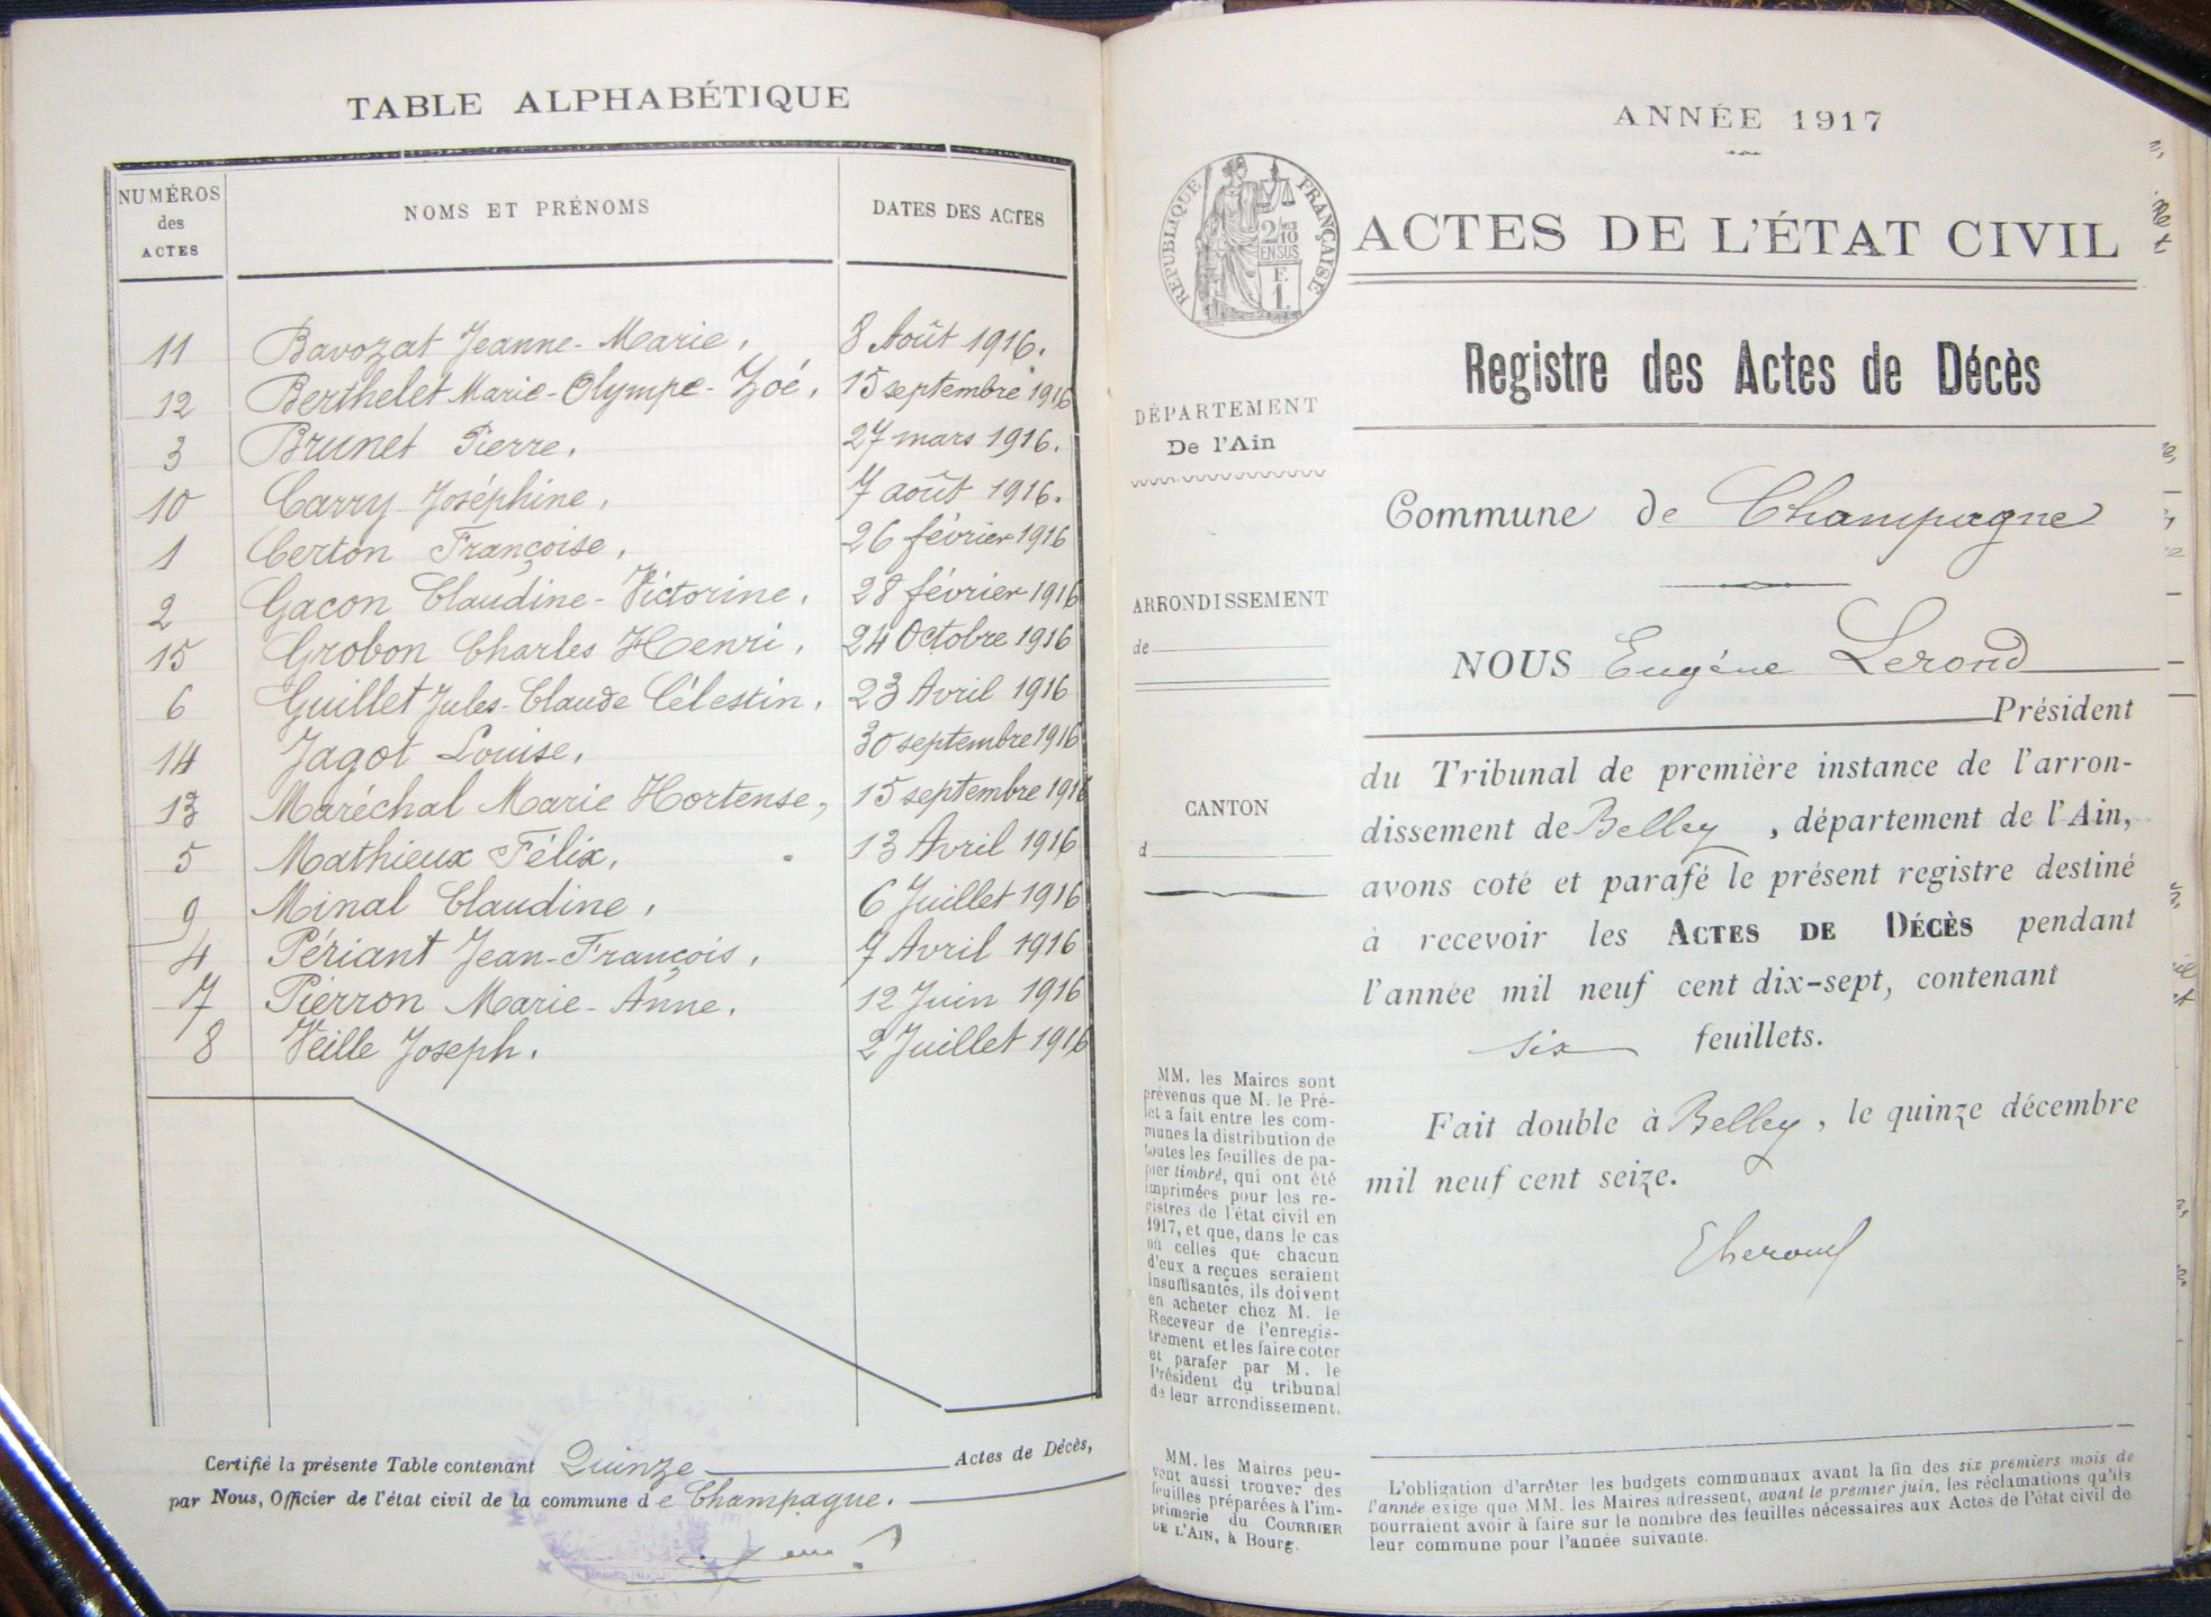 TABLE ALPHABÉTIQUE
NUMÉROS des ACTES NOMS ET PRÉNOMS DATES DES ACTES
11 Bavozat Jeanne-Marie. 8 Août 1916.
12 Berthelet Marie-Olympe-Zoé. 15 septembre 1916
3 Brunet Pierre. 27 mars 1916.
10 Carry Joséphine. 7 août 1916.
1 Certon Françoise. 26 février 1916
2 Gacon Claudine-Victorine. 28 février 1916
15 Grobon Charles Henri. 24 Octobre 1916
6 Guillet Jules-Claude Célestin. 23 Avril 1916
14 Jagot Louise. 30 septembre 1916
13 Maréchal Marie Hortense, 15 septembre 1916
5 Mathieux Félix. 13 Avril 1916
9 Minal Claudine. 6 Juillet 1916
4 Périant Jean-François. 9 Avril 1916
7 Pierron Marie-Anne. 12 Juin 1916
8 Veille Joseph. 2 Juillet 1916
Certifié la présente Table contenant Quinze Actes de Décès,
par Nous, Officier de l'état civil de la commune de Champagne.
ANNÉE 1917
RÉPUBLIQUE FRANÇAISE
2/10
EN SUS
F.
1.
ACTES DE L'ÉTAT CIVIL
Registre des Actes de Décès
DÉPARTEMENT
De l'Ain
Commune de Champagne
ARRONDISSEMENT
de
CANTON
d
NOUS Eugène Lerond
Président
du Tribunal de première instance de l'arron-
dissement de Belley, département de l'Ain,
avons coté et parafé le présent registre destiné
à recevoir les ACTES DE DÉCÈS pendant
l'année mil neuf cent dix-sept, contenant
six feuillets.
Fait double à Belley, le quinze décembre
mil neuf cent seize.
MM. les Maires sont
prévenus que M. le Pré-
fet a fait entre les com-
munes la distribution de
toutes les feuilles de pa-
pier timbré, qui ont été
imprimées pour les re-
gistres de l'état civil en
1917, et que, dans le cas
où celles que chacun
d'eux a reçues seraient
insuffisantes, ils doivent
en acheter chez M. le
Receveur de l'enregis-
trement et les faire coter
et parafer par M. le
Président du tribunal
de leur arrondissement.
MM. les Maires peu-
vent aussi trouver des
feuilles préparées à l'im-
primerie du COURRIER
DE L'AIN, à Bourg.
L'obligation d'arrêter les budgets communaux avant la fin des six premiers mois de
l'année exige que MM. les Maires adressent, avant le premier juin, les réclamations qu'ils
pourraient avoir à faire sur le nombre des feuilles nécessaires aux Actes de l'état civil de
leur commune pour l'année suivante.